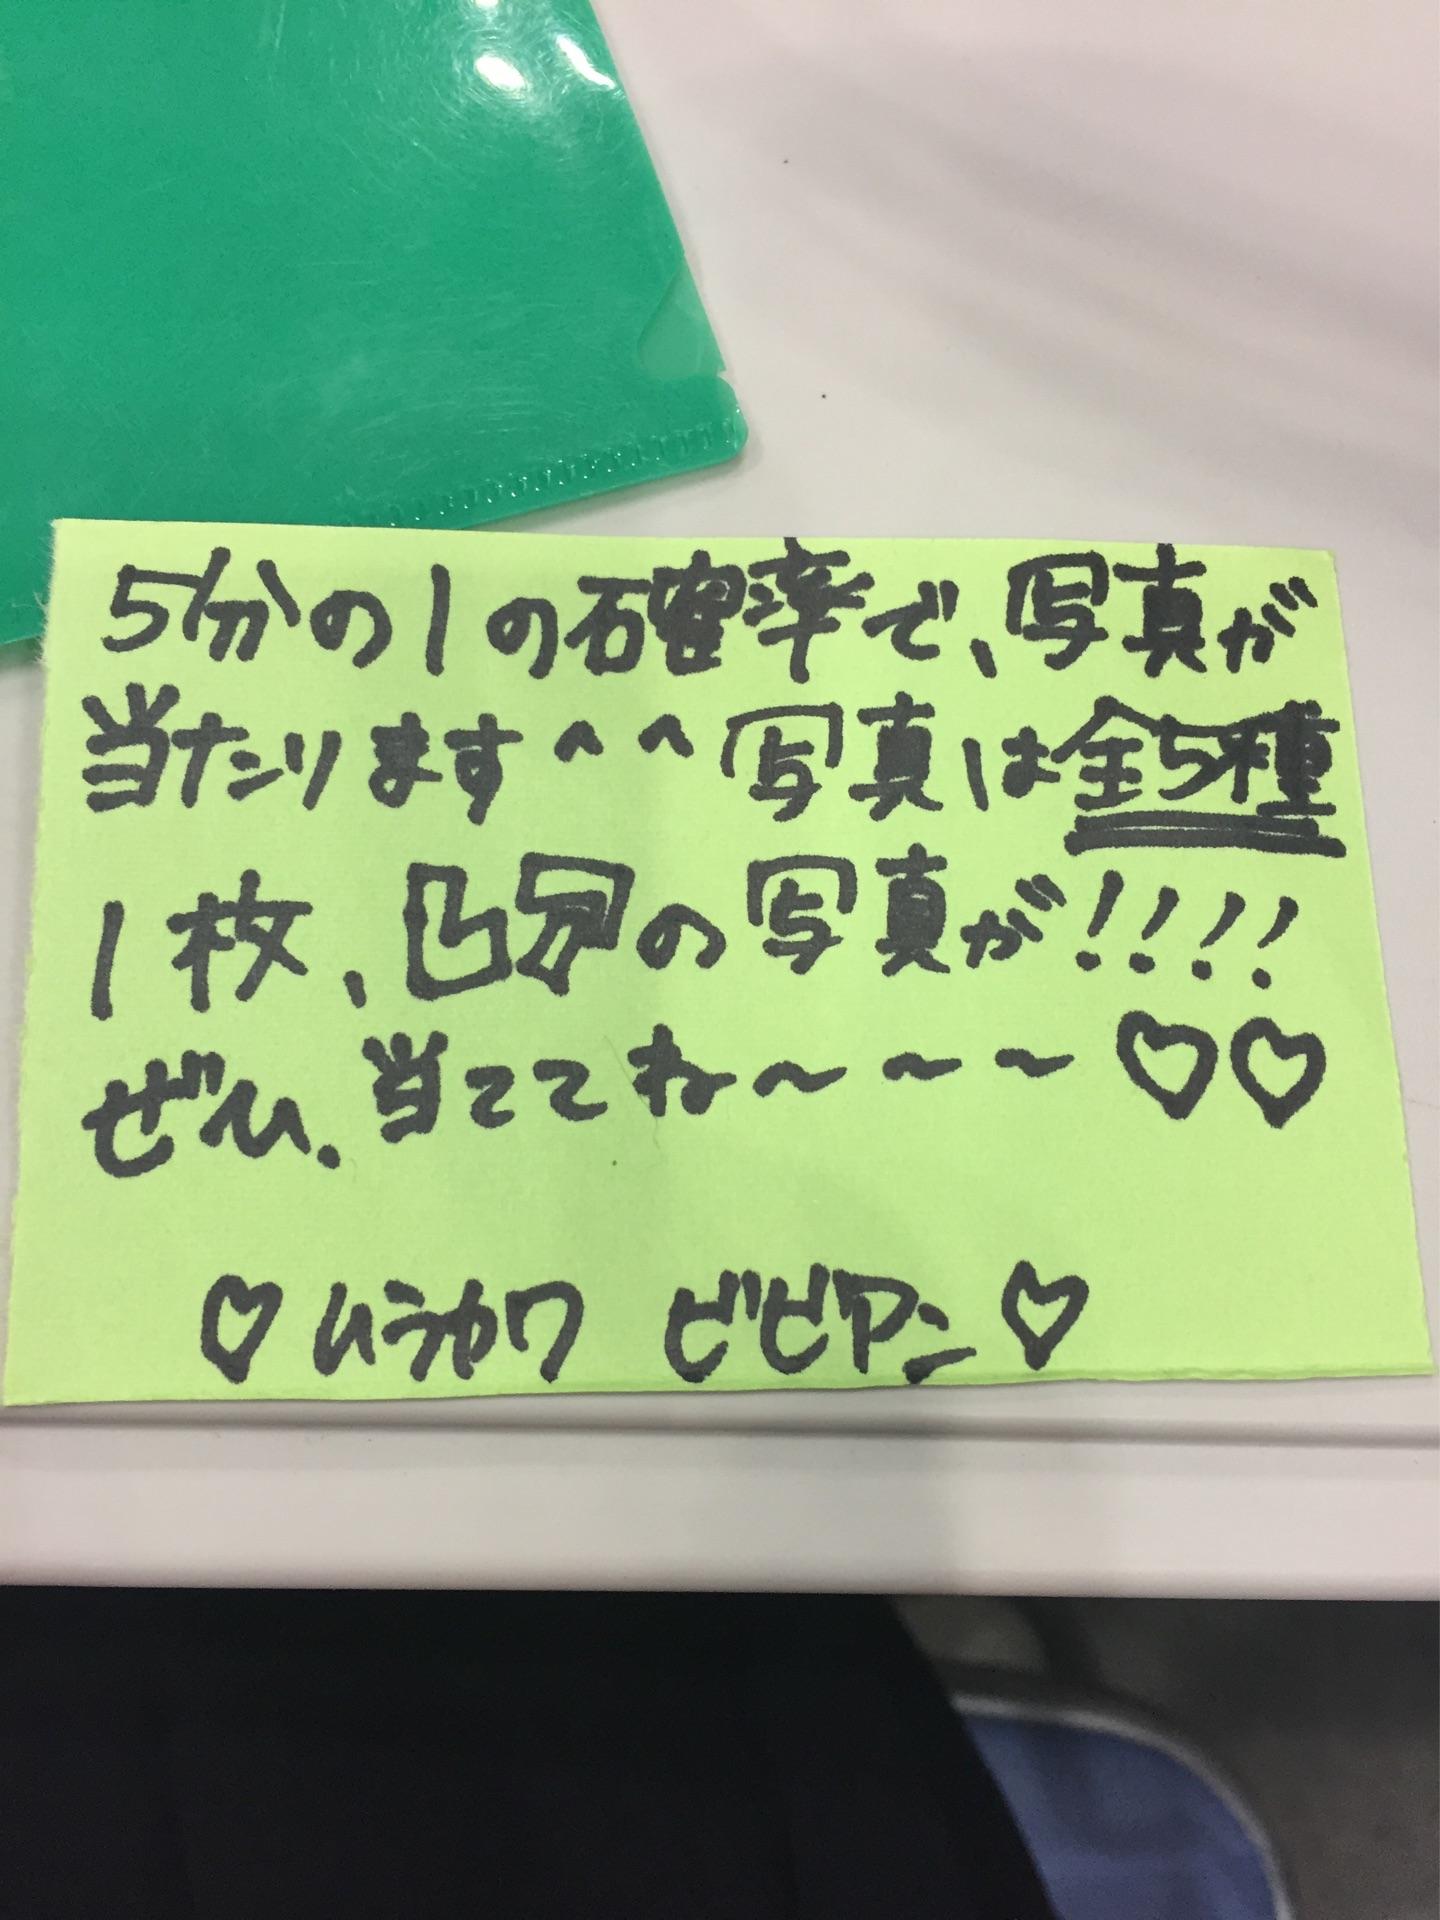 5分の1の確率で、写真が
当たります^^写真は全5種
1枚、凸凹の写真が!!!!
ぜひ、当ててね〜〜〜♡♡
♡ムラカワ ビビアン♡